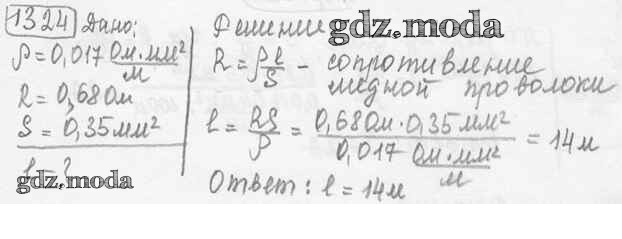 1324 Дано:
ρ=0,017 Ом·мм²/м
R=0,68 Ом
S=0,35 мм²
l=?
gdz.moda
Решение gdz.moda
R=ρ l/S - сопротивление
медной проволоки
l = RS/ρ = 0,68 Ом·0,35 мм² / 0,017 Ом·мм²/м = 14 м
Ответ: l = 14 м